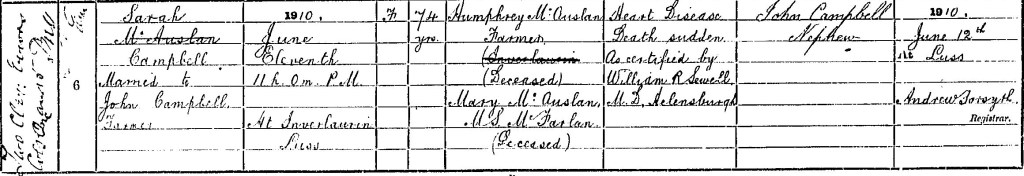 6
Sarah
McAuslan
Campbell
Married to
John Campbell
Farmer
1910,
June
Eleventh
11 h. 0 m. P.M.
At Inverlaurin
Luss
F
74
yrs.
Humphrey McAuslan
Farmer
(Inverlaurin
(Deceased)
Mary McAuslan,
M.S. McFarlan
(Deceased)
Heart Disease
Death sudden
As certified by
William R Sewell
M.D. Helensburgh
John Campbell
Nephew
1910,
June 12th
At Luss
Andrew Forsyth
Registrar.